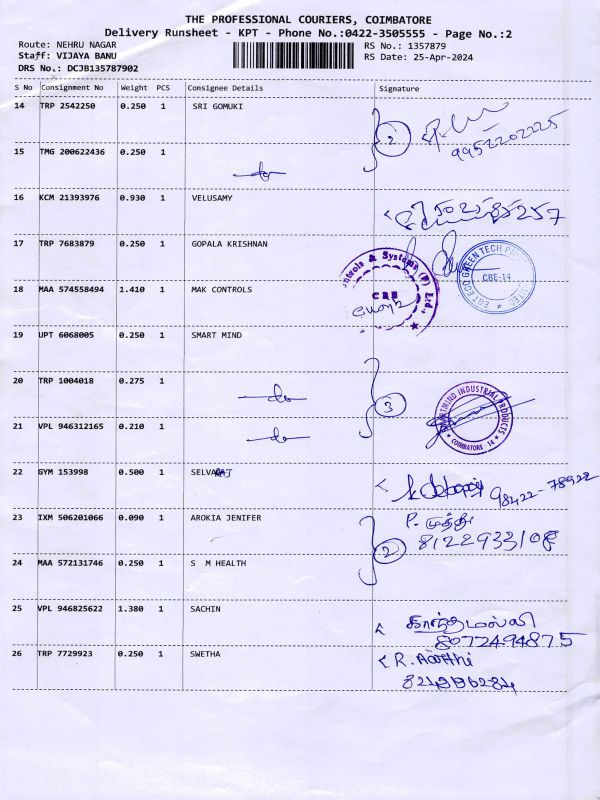 THE PROFESSIONAL COURIERS, COIMBATORE
Delivery Runsheet - KPT - Phone No.:0422-3505555 - Page No.:2
Route: NEHRU NAGAR
RS No.: 1357879
Staff: VIJAYA BANU
RS Date: 25-Apr-2024
DRS No.: DCJB135787902
S No Consignment No Weight PCS Consignee Details Signature
14 TRP 2542250 0.250 1 SRI GOMUKI
2
9952202225
15 TMG 200622436 0.250 1 do
16 KCM 21393976 0.930 1 VELUSAMY
17 TRP 7683879 0.250 1 GOPALA KRISHNAN
EGT ECO GREEN TECH
CBE-14
18 MAA 574558494 1.410 1 MAK CONTROLS
ntrols & Systems (P) Ltd.,
CBE
19 UPT 6068005 0.250 1 SMART MIND
20 TRP 1004018 0.275 1 do
3
SMARTMIND INDUSTRIAL PRODUCTS
COIMBATORE 14
21 VPL 946312165 0.210 1 do
22 GYM 153998 0.500 1 SELVARAJ
98422-78922
23 IXM 506201066 0.090 1 AROKIA JENIFER
P. முத்து
8122933108
2
24 MAA 572131746 0.250 1 S M HEALTH
25 VPL 946825622 1.380 1 SACHIN
8072494875
26 TRP 7729923 0.250 1 SWETHA
R. Aarthi